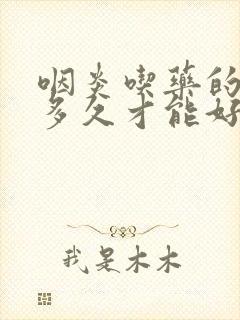 咽炎喫藥的
多久才能好
我是木木